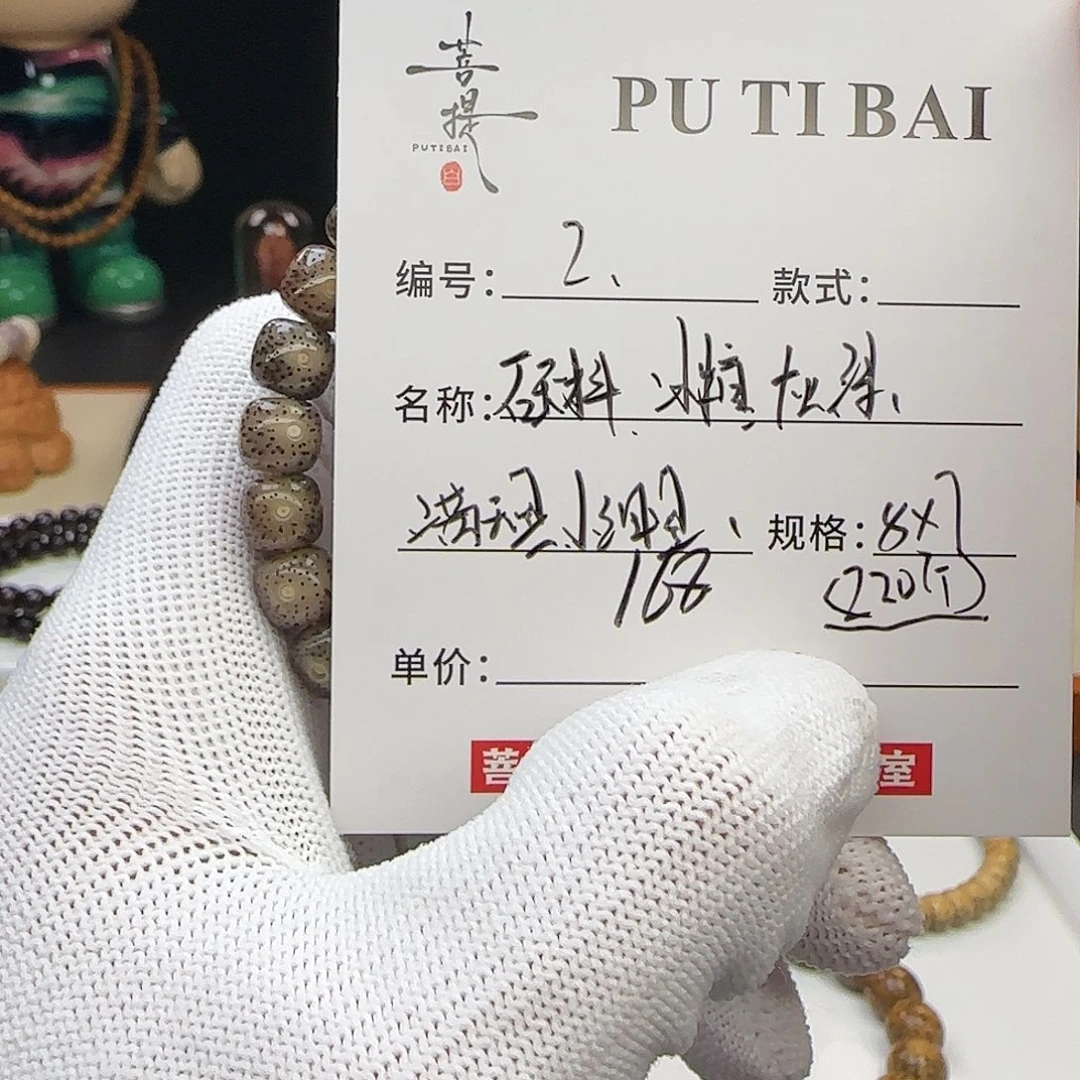 菩提
PUTIBAI
白
PU TI BAI
编号: 2、 款式:
名称: 原料 冰糯灰系、
满天星
规格: 8×7
168
(220个)
单价:
菩
室